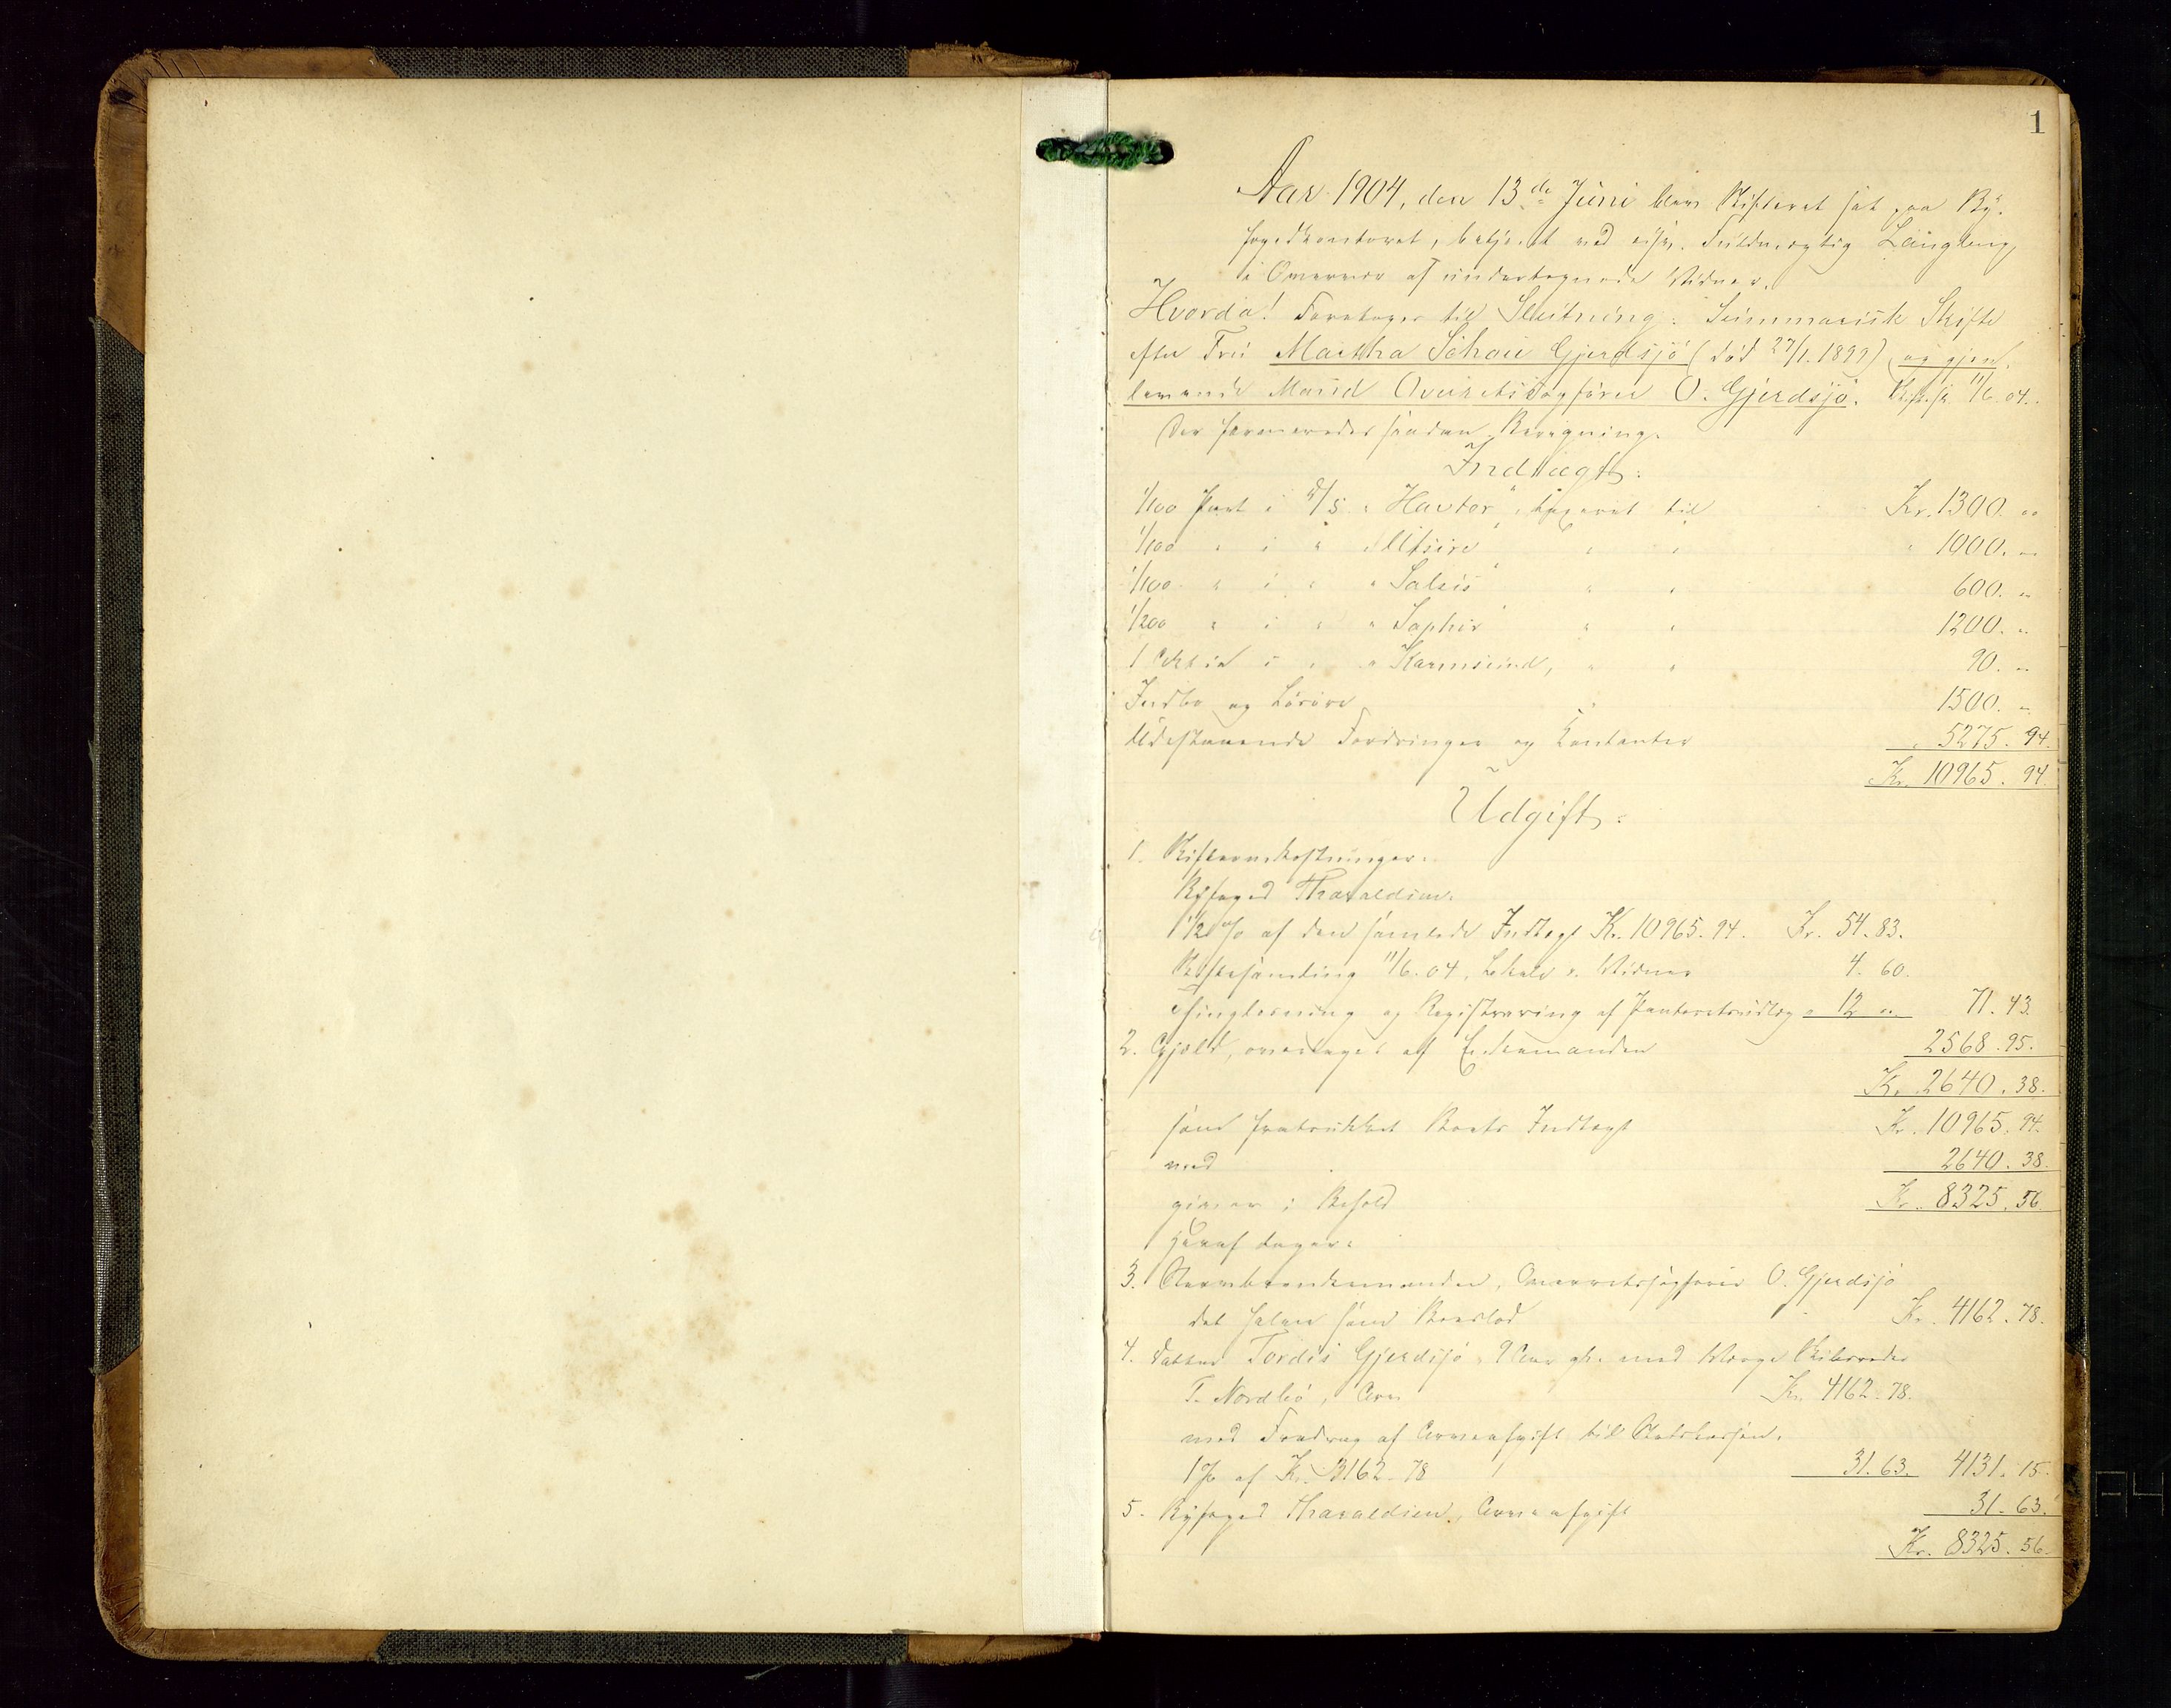 1
Aar 1904, den 13de Juni blev Skifteret sat paa By-
fogedkontoret, betjent ved edsv. Fuldmægtig
i Overvær af undertegnede Vidner.
Hvorda! Foretoges til Slutning: Summarisk Skifte
efter Fru Martha Schou Gjerdsjö (död 27/1.1899) og gjen-
levende Mand Overretssagförer O. Gjerdsjö. 11/6.04.
Der formeredes saadan Beregning.
Indtægt:
1/100 Part i D/S "Havtor", taxeret til Kr. 1300. "
1/100 " i " "Utsire" " " " 1000. "
1/100 " i " " " " 600. "
1/200 " i " "Saphir" " " 1200. "
1 Aktie i " "Karmsund", " " 90. "
Indbo og Lösöre 1500. "
Udestaaende Fordringer og Kontanter " 5275. 94.
Kr. 10965. 94.
Udgift:
1. Skifteomkostninger:
Byfoged Tharaldsen.
1/2 % af den samlede Indtægt Kr. 10965.94. Kr. 54.83.
Skiftesamling 11/6.04, Lokale o. Vidner 4. 60.
Thinglæsning og Registrering af Panteretsudlæg " 12 " 71. 43.
2. Gjæld, overtaget af Enkemanden 2568. 95.
Kr. 2640. 38.
som fratrukket Boets Indtægt Kr. 10965. 94.
med 2640. 38.
giver i Behold Kr. 8325. 56.
Heraf tager:
3. Stervboenkemanden, Overretssagförer O. Gjerdsjö
det halve som Boeslod Kr. 4162. 78.
4. Datter Tordis Gjerdsjö, 9 Aar gl. med Værge Skibsreder
T. Nordbö, Arv Kr. 4162. 78.
med Fradrag af Arveafgift til Statskassen.
1 % af Kr. 3162. 78 31. 63. 4131. 15.
5. Byfoged Tharaldsen, Arveafgift 31. 63.
Kr. 8325. 56.